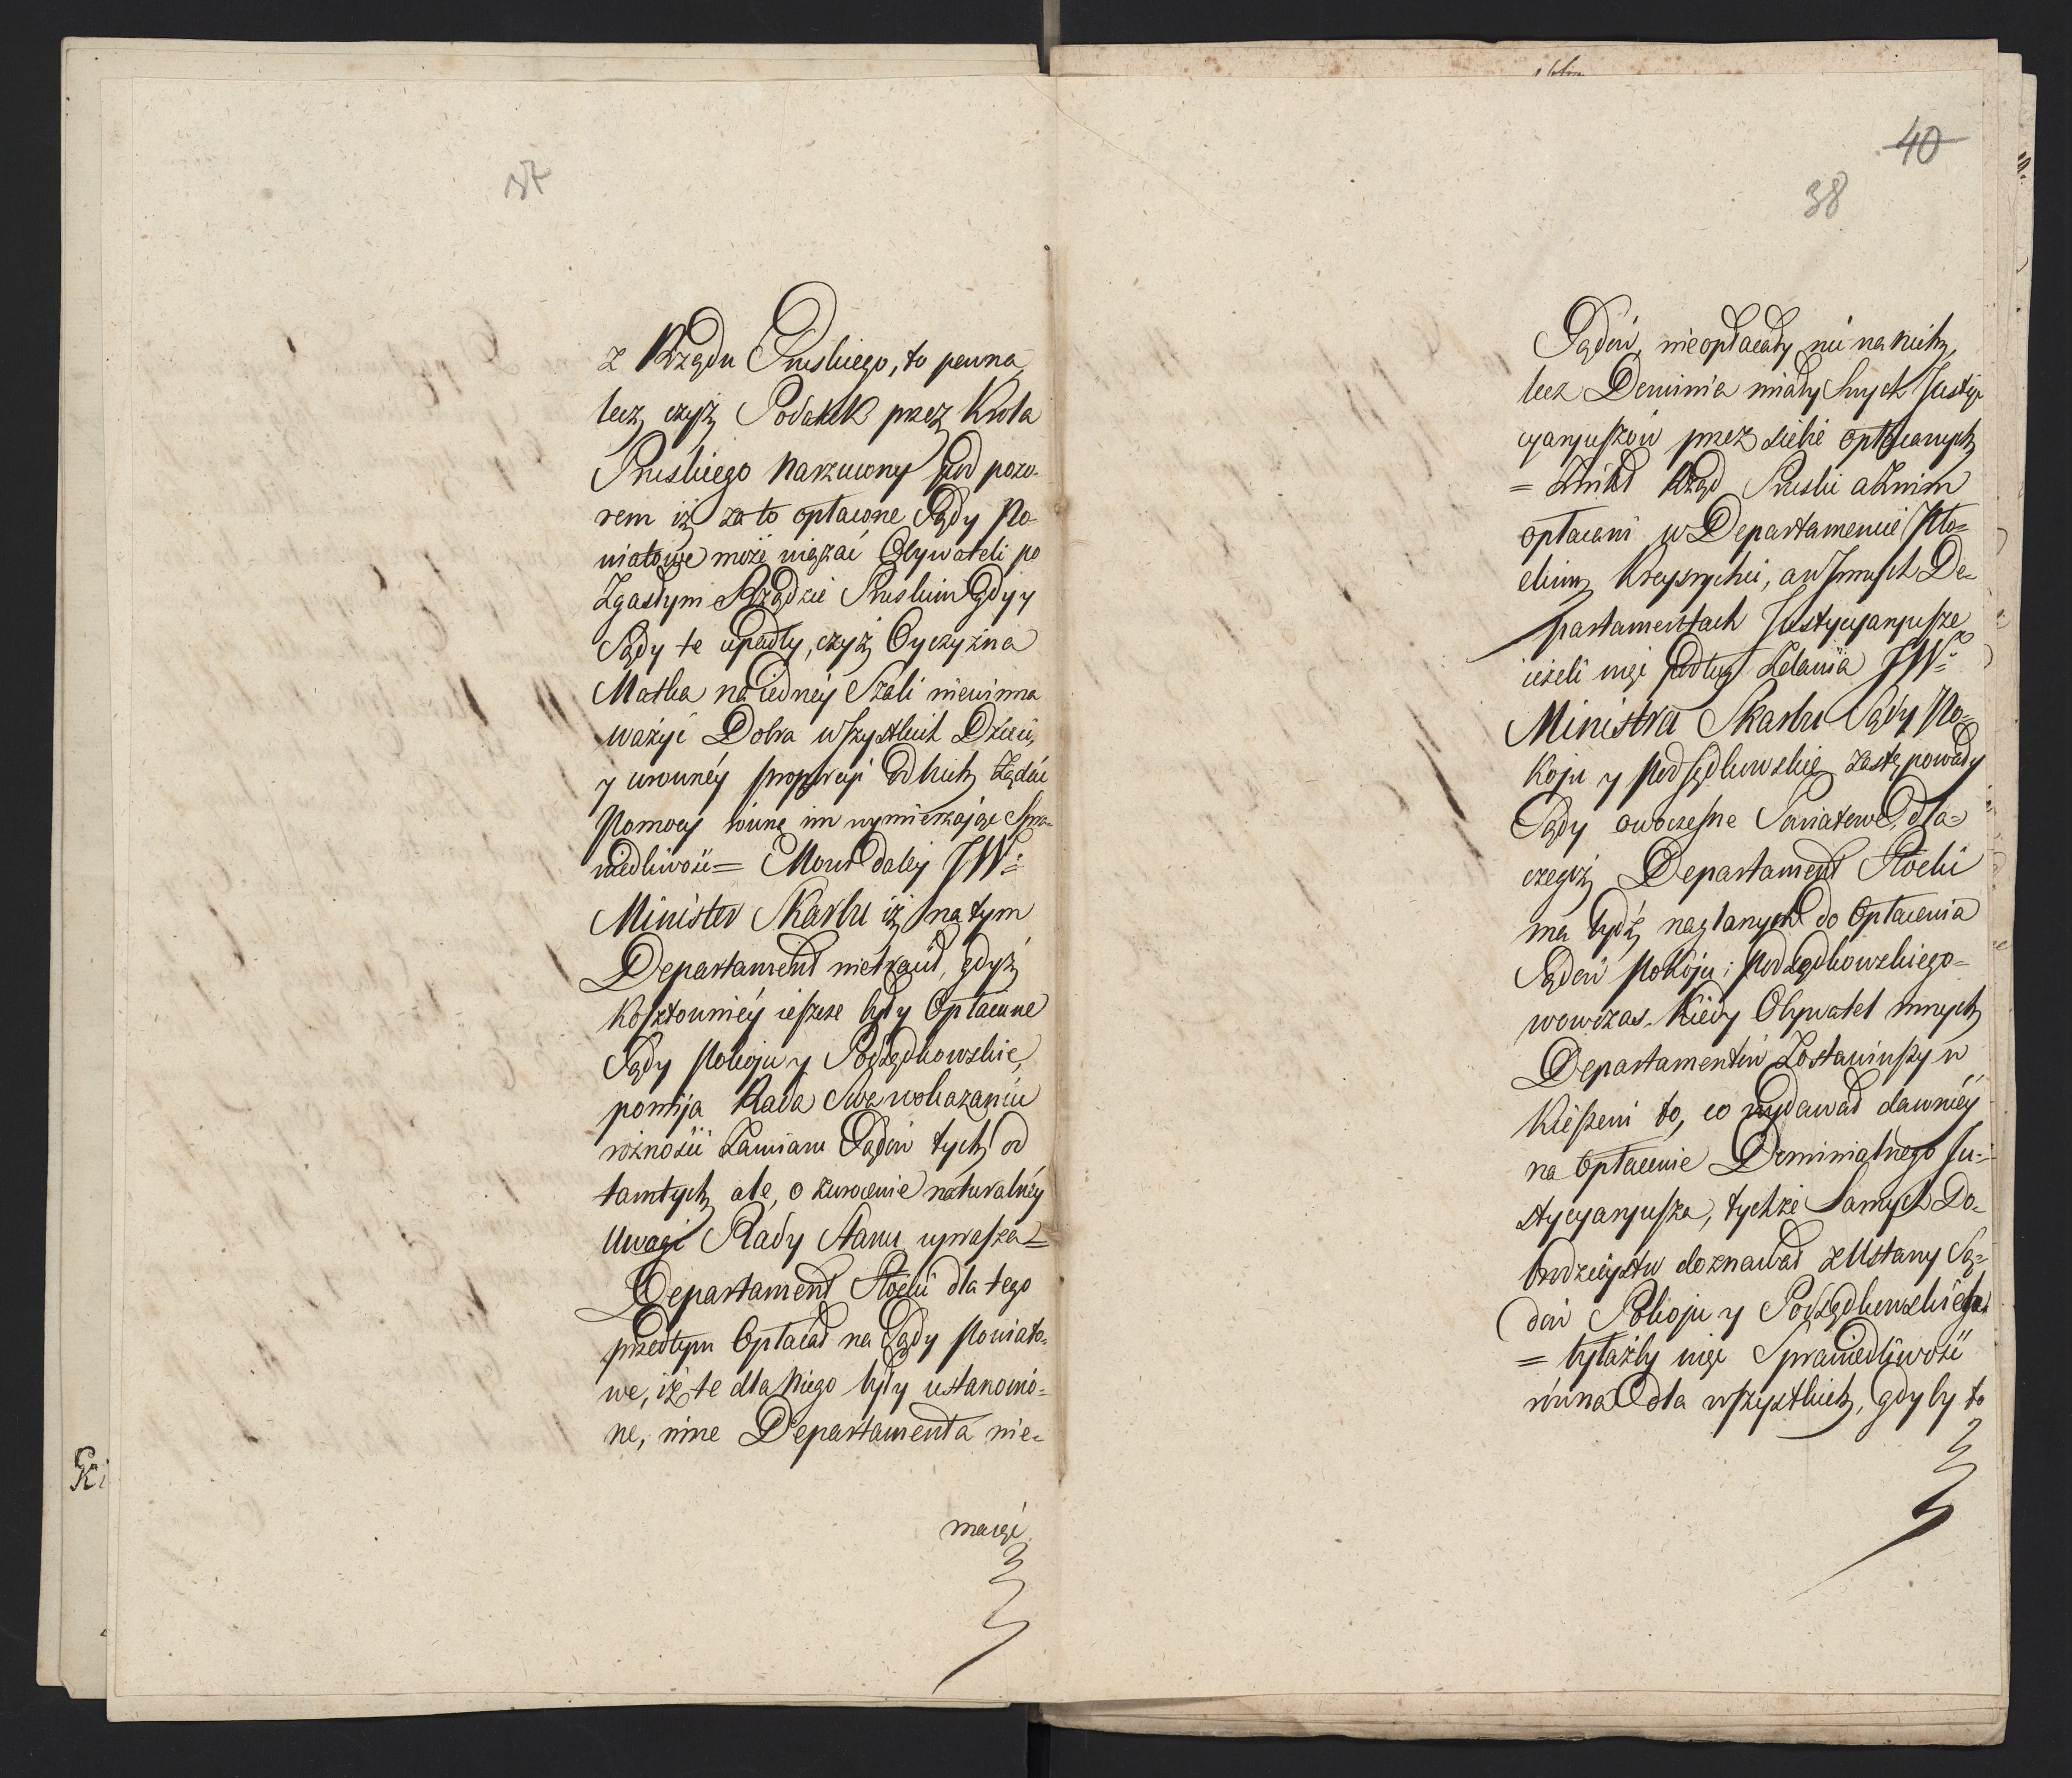 37
z Rządu Pruskiego, to pewna,
lecz czyż Podatek przez Krola
Pruskiego narzucony pod pozo-
rem iż za to opłacone Sądy Po-
wiatowe może wiązać Obywateli po
Zgasłym Rządzie Pruskim gdy y
Sądy te upadły, czyż Oyczyzna
Matka na iedney Szali niewinna
ważyć Dobra wszystkich Dzieci,
y w rowney proporcyi od nich żądać
Pomocy równą im wymierzając Spra-
wiedliwość = Mowi daley JW:
Minister Skarbu iż na tym
Departament nietracił, gdyż
Kosztowniey ieszcze były Opłacane
Sądy Pokoju y Podsędkowskie,
pomija Rada w okazaniu
rożności Zamiaru Sądów tych od
tamtych, ale, o zwrocenie naturalney
Uwagi Rady Stanu uprasza =
Departament Płocki dla tego
przedtym Opłacał na Sądy Powiato-
we, iż te dla Niego były ustanowio-
ne, inne Departamenta nie-
maiąc
40
38
Sądów, nieopłacały nic na nich,
lecz Dominia miały Swych Justy-
cyaryuszów przez siebie opłacanych
= Znikł Rząd Pruski a Znim
opłacani w Departamencie Pło-
ckim Kreysrychci, a w Innych De-
partamentach Justycyaryusze
ieżeli więc podług Zdania JW:
Ministra Skarbu Sądy Po-
koju y Podsędkowskie zastępowały
Sądy owoczesne Powiatowe, dla-
czegoż Departament Płocki
ma bydź naglanym do Opłacenia
Sądów Pokoju i Podsędkowskiego =
wowczas. Kiedy Obywatel innych
Departamentów Zostawiwszy w
Kieszeni to, co wydawał dawniey
na Opłacenie Dominialnego Ju-
stycyaryusza, tychże Samych Do-
brodzieystw doznawał z Ustawy Są-
dów Pokoju y Podsędkowskiego
= byłażby więc Sprawiedliwość
równa dla wszystkich, gdyby to